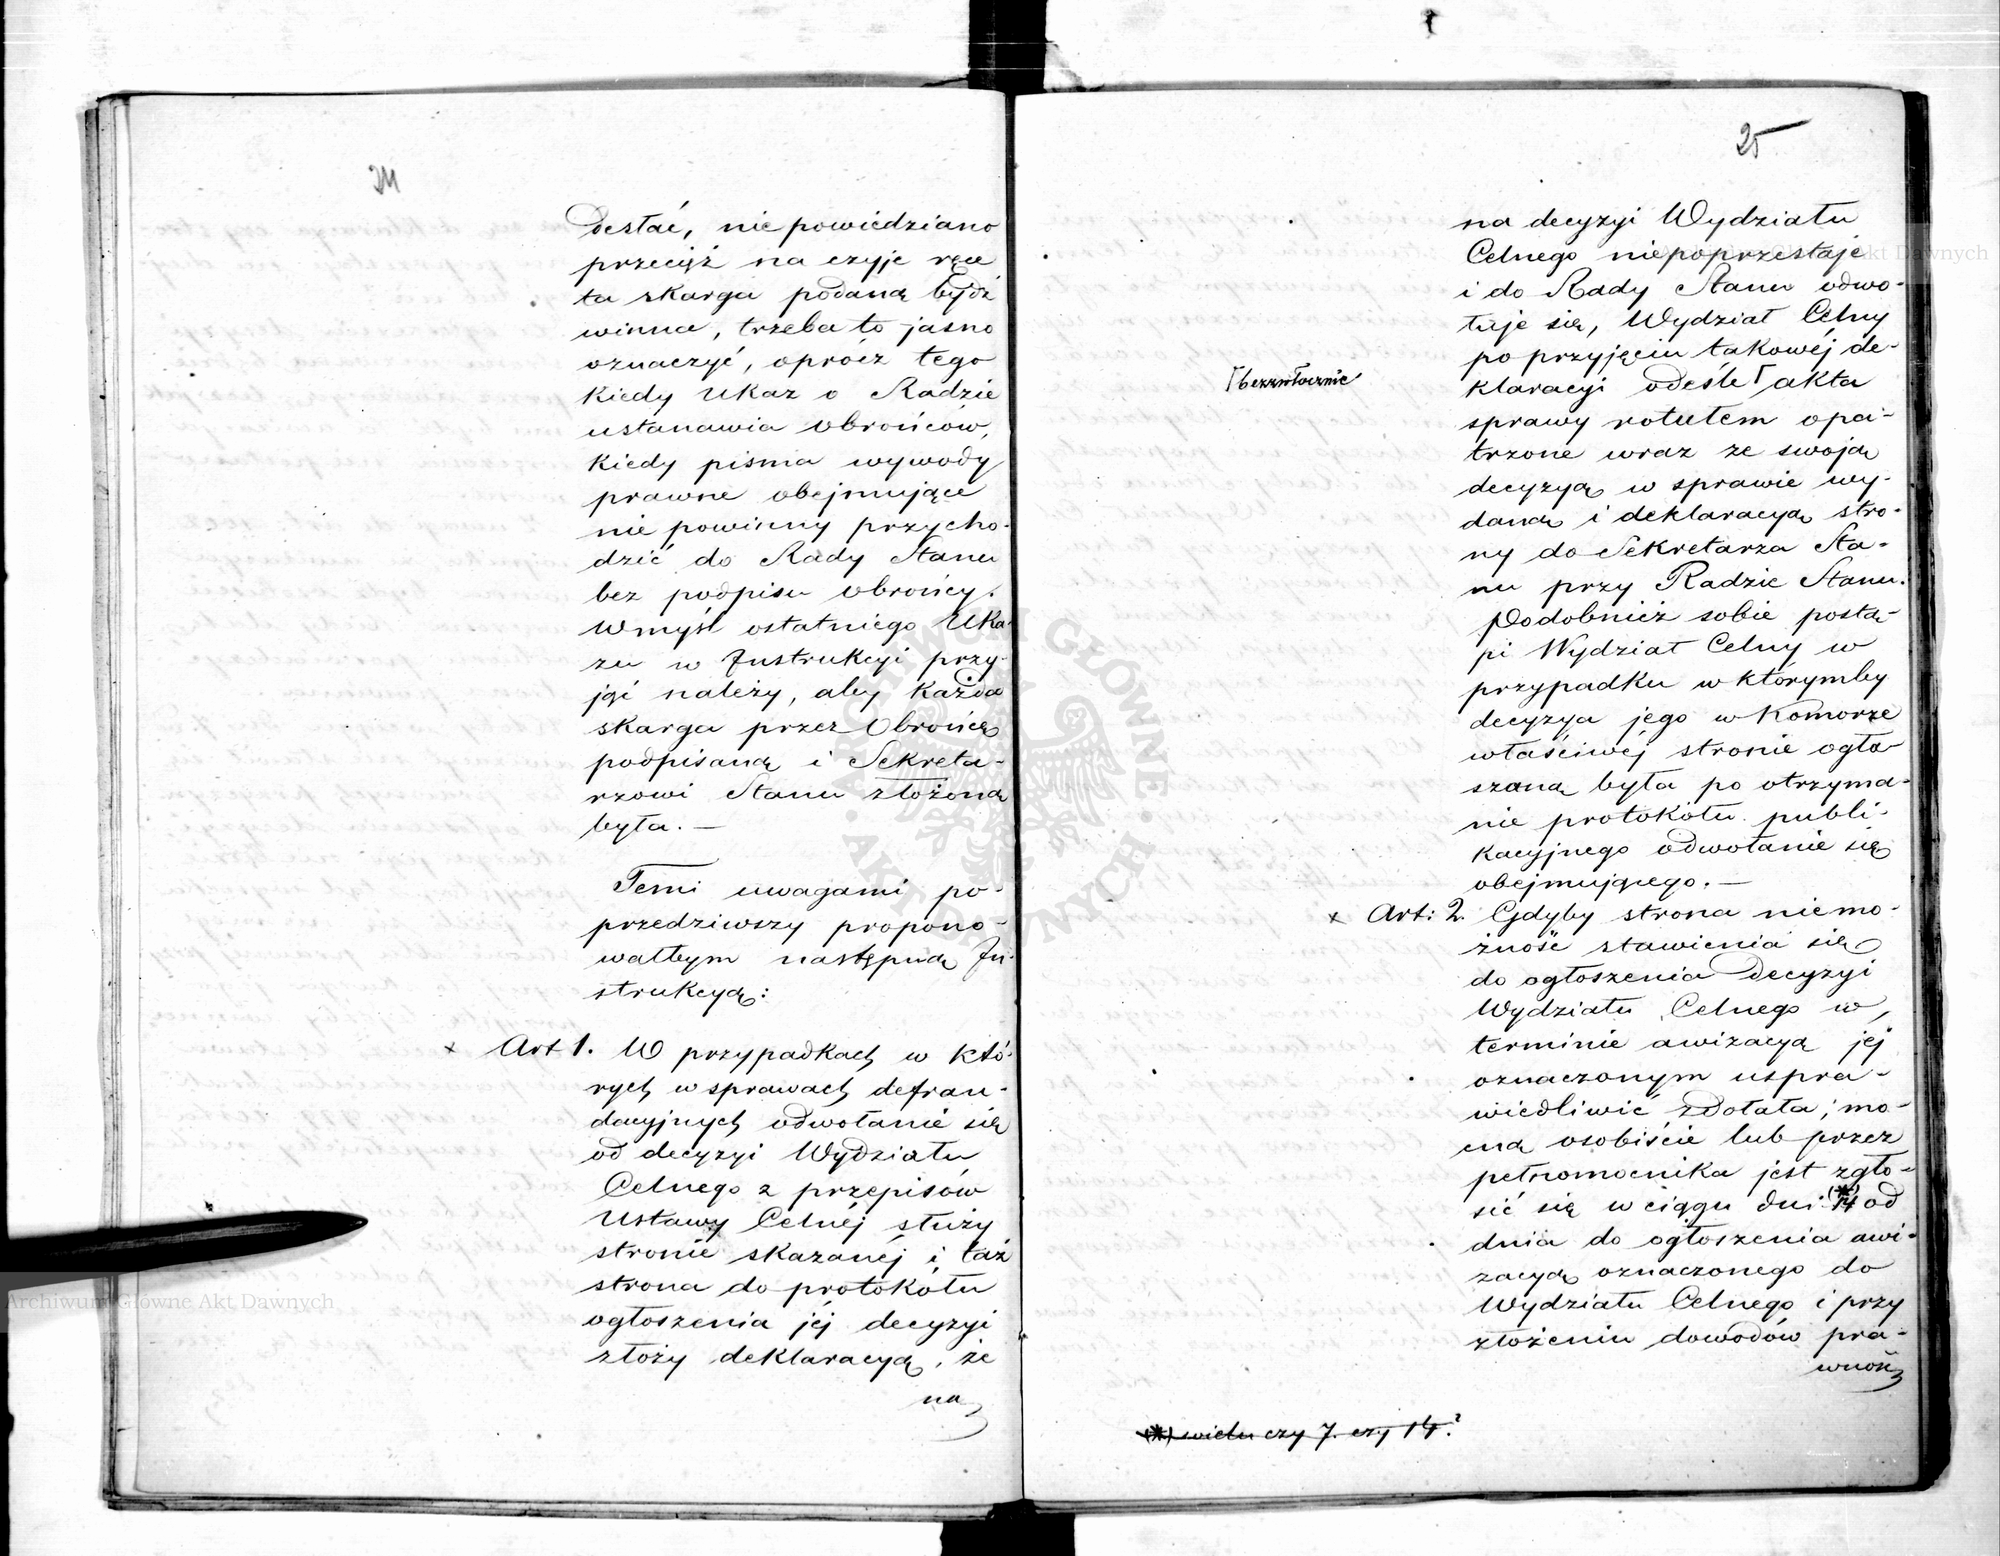 24
desłać, nie powiedziano
przecięż na czyje ręce
ta skarga podaną bydź
winna, trzeba to jasno
oznaczyć, oprócz tego
kiedy Ukaz o Radzie
ustanawia obrońców,
kiedy pisma wywody
prawne obejmujące
nie powinny przycho-
dzić do Rady Stanu
bez podpisu obrońcy.
Wmyśl ostatniego Uka-
zu w Instrukcyi przy-
jąć należy, aby każda
skarga przez Obrońcę
podpisaną i Sekreta-
rzowi Stanu złożoną
była. —
Temi uwagami po-
przedziwszy propono-
wałbym następną In-
strukcyą:
x Art 1. W przypadkach w któ-
rych w sprawach defrau-
dacyjnych odwołanie się
od decyzyi Wydziału
Celnego z przepisów
Ustawy Celnéj służy
stronie skazanéj i taż
strona do protokółu
ogłoszenia jéj decyzyi
złoży deklaracyą, że
na
25
na decyzyi Wydziału
Celnego niepoprzestaje
i do Rady Stanu odwo-
łuje się, Wydział Celny
po przyjęciu takowéj de-
klaracyi odeśle ⌈ akta
⌈bezzwłocznie
sprawy rotułem opa-
trzone wraz ze swoją
decyzyą w sprawie wy-
daną i deklaracyą stro-
ny do Sekretarza Sta-
nu przy Radzie Stanu.
Podobnież sobie postą-
pi Wydział Celny w
przypadku w którymby
decyzya jego w Komorze
właściwéj stronie ogło-
szoną była po otrzyma-
nie protokółu publi-
kacyjnego odwołanie się
obejmującego. —
x Art: 2. Gdyby strona niemo-
żność stawienia się
do ogłoszenia decyzyi
Wydziału Celnego w
terminie awizacyą jej
oznaczonym uspra-
wiedliwić zdołała, mo-
cną osobiście lub przez
pełnomocnika jest zgło-
sić się w ciągu dni (*) 14 od
dnia do ogłoszenia awi-
zacyą oznaczonego do
Wydziału Celnego i przy
złożeniu dowodów pra-
wnoś
(*) wielu czy 7. czy 14.?
Archiwum Główne Akt Dawnych